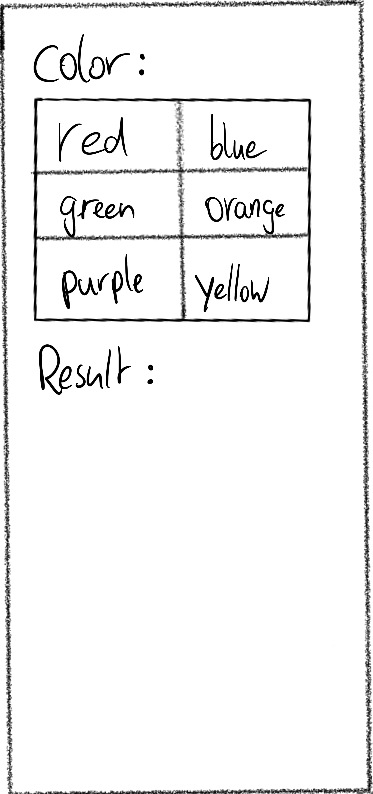 Color:
red blue
green orange
purple yellow
Result: